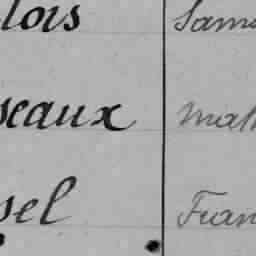 lois Samu
seaux Math
sel Fran